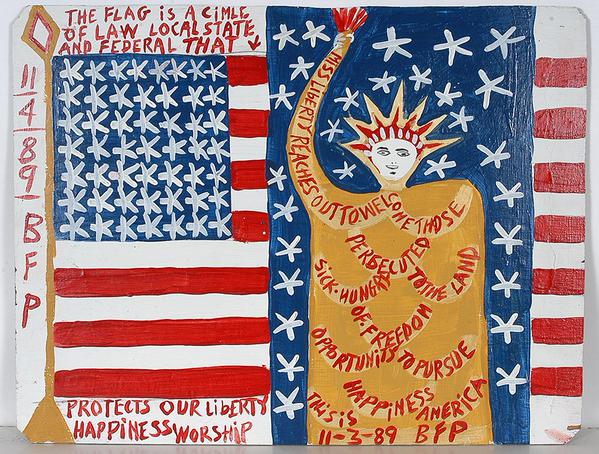 THE FLAG IS A CIMLE
OF LAW LOCAL STATE
AND FEDERAL THAT
PROTECTS OUR LIBERTY
HAPPINESS WORSHIP
11
4
89
BFP
MISS LIBERTY REACHES OUT TO WELCOME THOSE
PERSECUTED
SICK-HUNGRY TO THE LAND
OF-FREEDOM
OPPORTUNITS TO PURSUE
HAPPINESS
THIS IS AMERICA
11-3-89 BFP